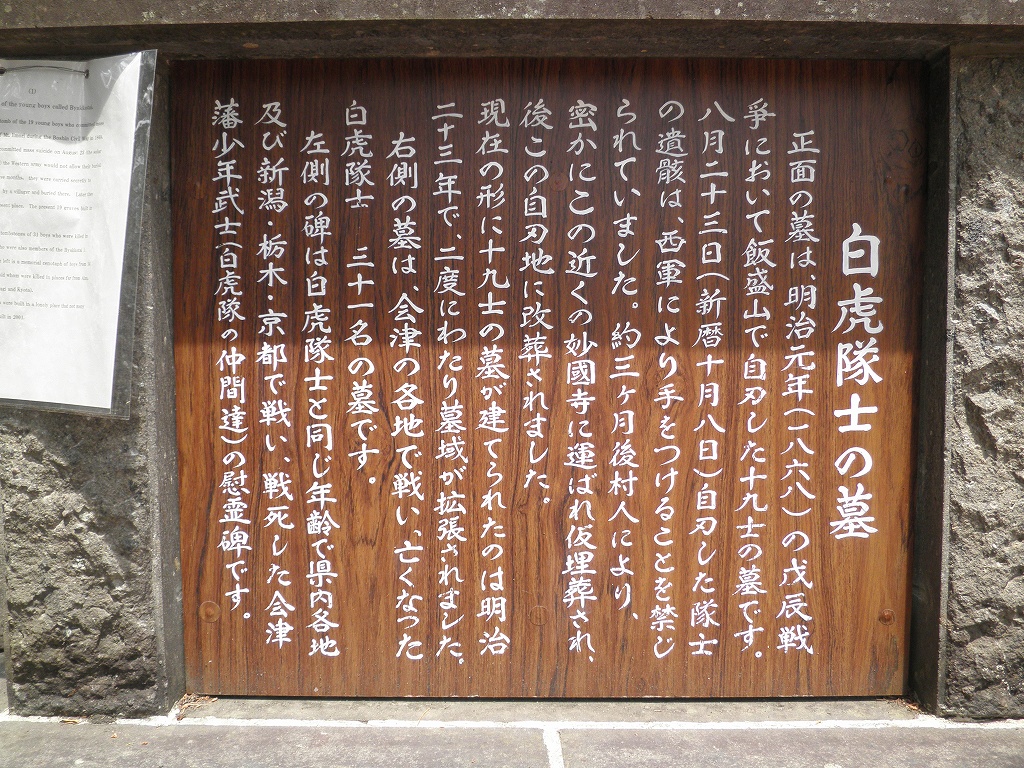 白虎隊士の墓
正面の墓は、明治元年(一八六八)の戊辰戦
争において飯盛山で自刃した十九士の墓です。
八月二十三日(新暦十月八日)自刃した隊士
の遺骸は、西軍により手をつけることを禁じ
られていました。約三ヶ月後村人により、
密かにこの近くの妙國寺に運ばれ仮埋葬され、
後この自刃地に改葬されました。
現在の形に十九士の墓が建てられたのは明治
二十三年で、二度にわたり墓域が拡張されました。
右側の墓は、会津の各地で戦い、亡くなった
白虎隊士 三十一名の墓です。
左側の碑は白虎隊士と同じ年齢で県内各地
及び新潟・栃木・京都で戦い、戦死した会津
藩少年武士(白虎隊の仲間達)の慰霊碑です。
(1)
of the young boys called Byakkotai
tomb of the 19 young boys who committed
committed mass suicide on August 23
the Western army would not allow their
months. they were carried secretly
by a villager and buried there. Later
place. The present 19 graves
of 31 boys who were killed
were also members of the Byakkotai
left is a memorial cenotaph of boys
whom were killed in places far from
and Kyoto).
were built in a lonely place
in 2001.